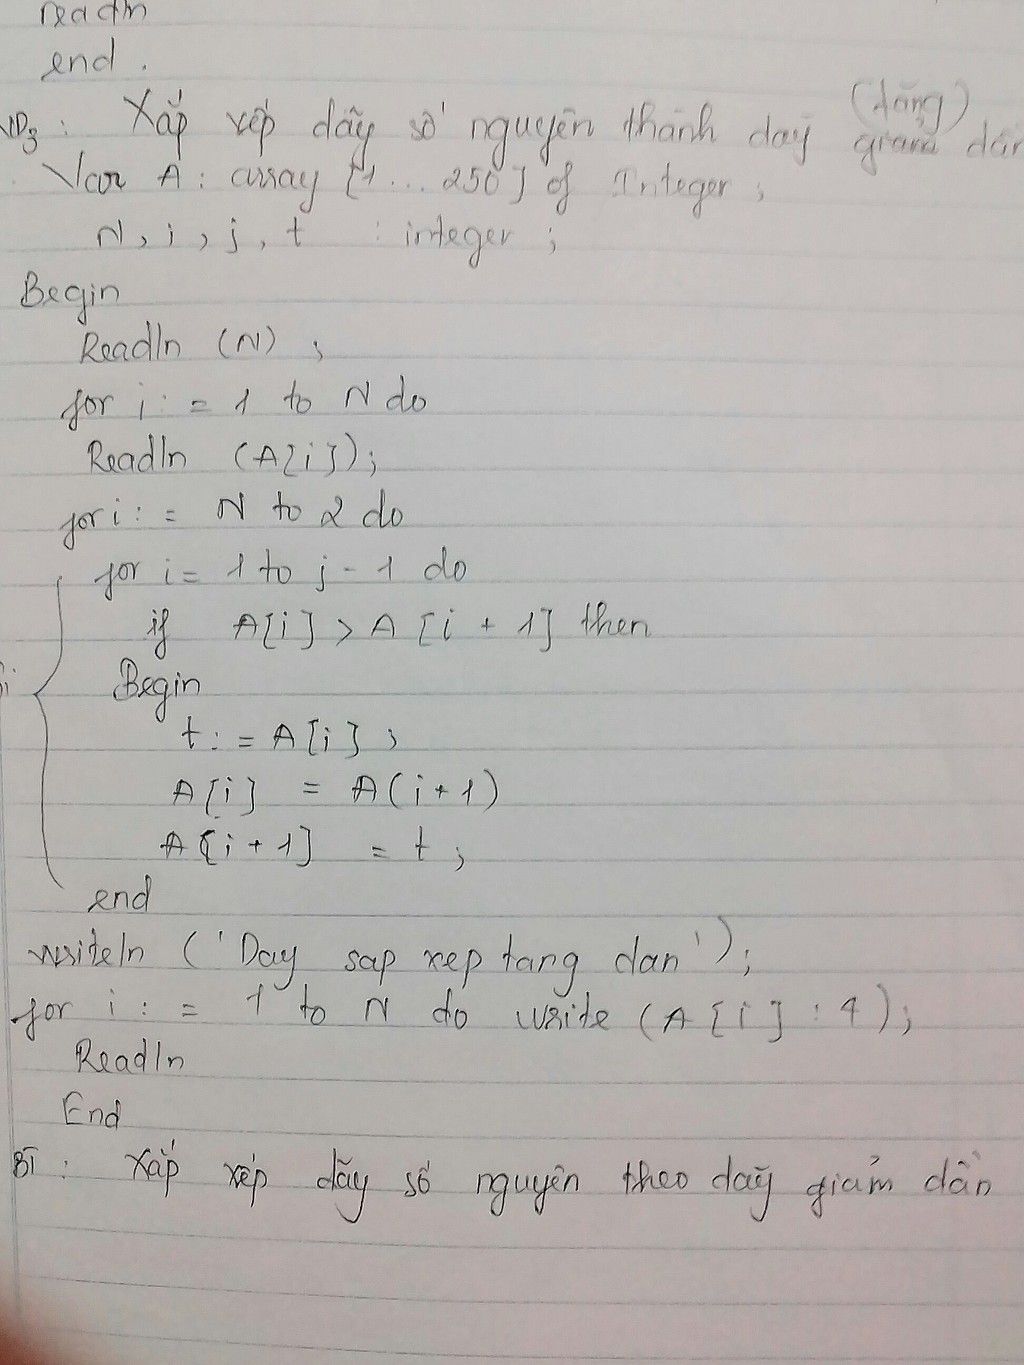 readln
end .
VD3 : Xắp xếp dãy số nguyên thành dãy giảm dần (tăng)
Var A : array [1 ... 250] of Integer ;
N , i , j , t : integer ;
Begin
Readln (N) ;
for i : = 1 to N do
Readln (A[i]) ;
for i : = N to 2 do
for i = 1 to j - 1 do
if A[i] > A [i + 1] then
Begin
t : = A[i] ;
A[i] = A(i+1)
A[i+1] = t ;
end
writeln ('Day sap xep tang dan') ;
for i : = 1 to N do write (A [i] : 4) ;
Readln
End
BT : Xắp xếp dãy số nguyên theo dãy giảm dần